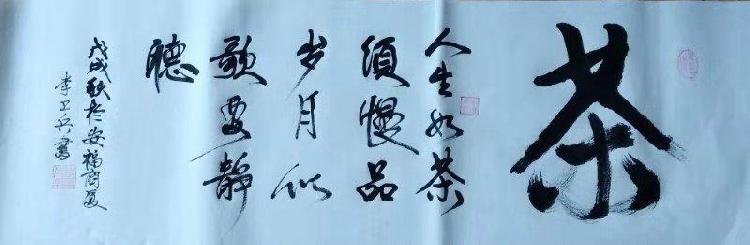 茶
人生如茶
须慢品
岁月似
歌要静
聽
戊戌秋於安福商厦
李卫兵書